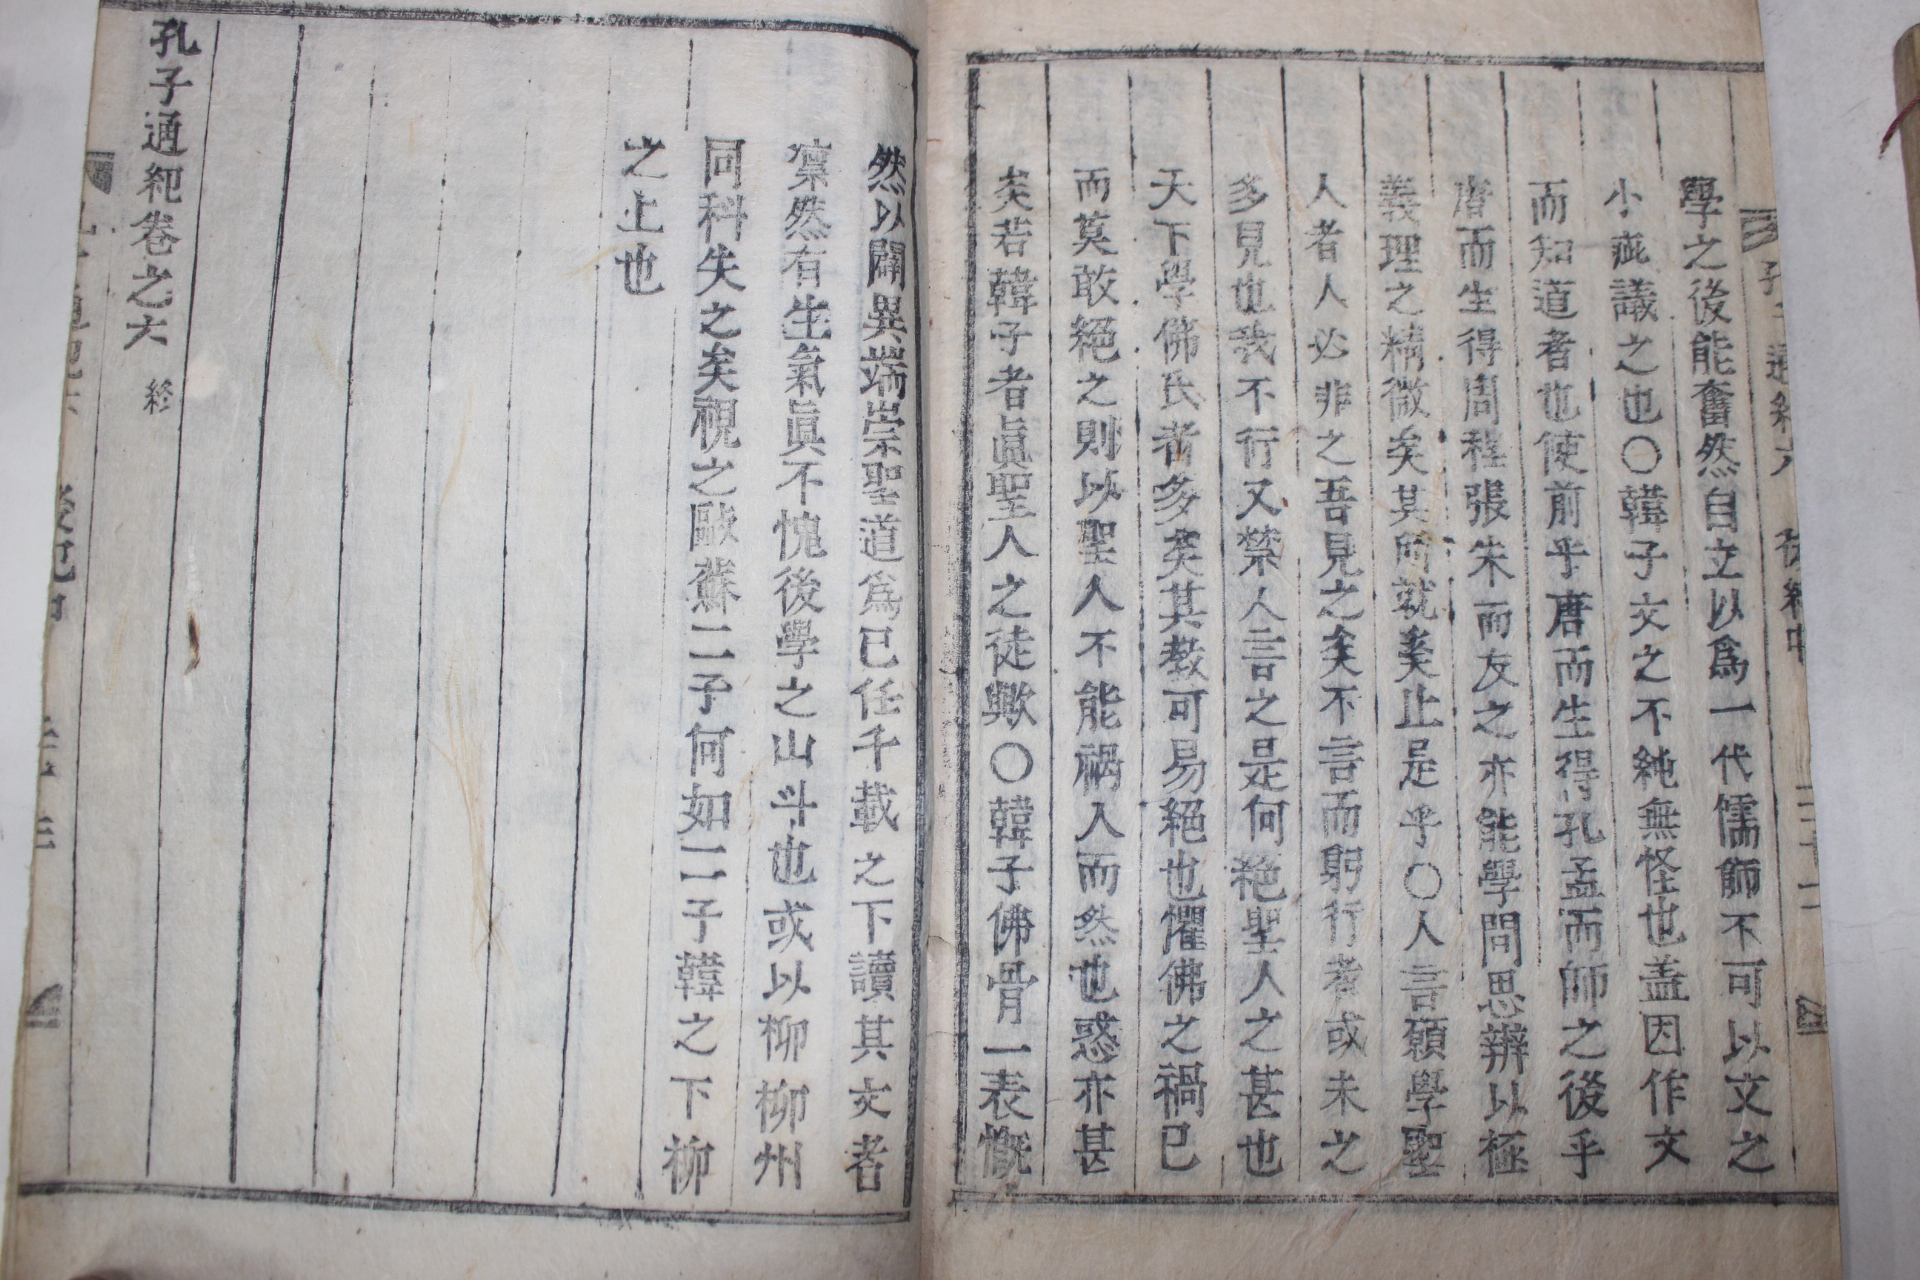 學之後能奮然自立以爲一代儒師不可以文之
小疵議之也〇韓子文之不純無怪也盖因作文
而知道者也使前乎唐而生得孔孟而師之後乎
唐而生得周程張朱而友之亦能學問思辨以極
義理之精微矣其所就奚止是乎〇人言願學聖
人者人必非之吾見之矣不言而躬行者或未之
多見也我不行又禁人言之是何絶聖人之甚也
天下學佛氏者多矣其教可易絶也懼佛之禍已
而莫敢絕之則以聖人不能禍人而然也惑亦甚
矣若韓子者眞聖人之徒歟〇韓子佛骨一表慨
然以闢異端崇聖道爲已任千載之下讀其文者
凛然有生氣眞不愧後學之山斗也或以柳柳州
同科失之矣視之歐蘇二子何如二子韓之下柳
之上也
孔子通紀卷之六 終